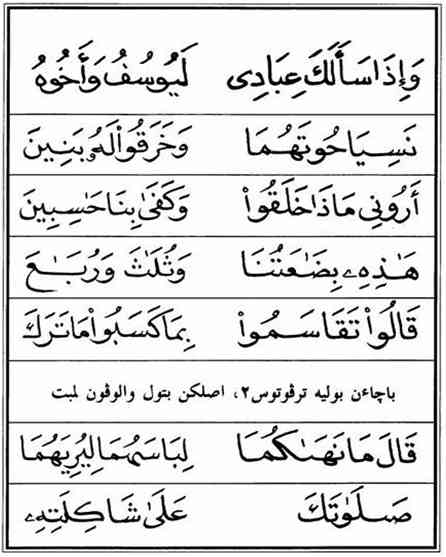 وَإِذَا سَأَلَكَ عِبَادِى لَيُوسُفُ وَأَخُوهُ
نَسِيَا حُوتَهُمَا وَخَرَقُوا۟ لَهُۥ بَنِينَ
أَرُونِى مَاذَا خَلَقُوا۟ وَكَفَىٰ بِنَا حَٰسِبِينَ
هَٰذِهِۦ بِضَٰعَتُنَا وَثُلَٰثَ وَرُبَٰعَ
قَالُوا۟ تَقَاسَمُوا۟ بِمَا كَسَبُوا۟ مَا تَرَكَ
باچاءن بوليه ترڤوتوس٢، اصلكن بتول والوڤون لمبت
قَالَ مَا نَهَىٰكُمَا لِبَاسَهُمَا لِيُرِيَهُمَا
صَلَوٰتِكَ عَلَىٰ شَاكِلَتِهِۦ